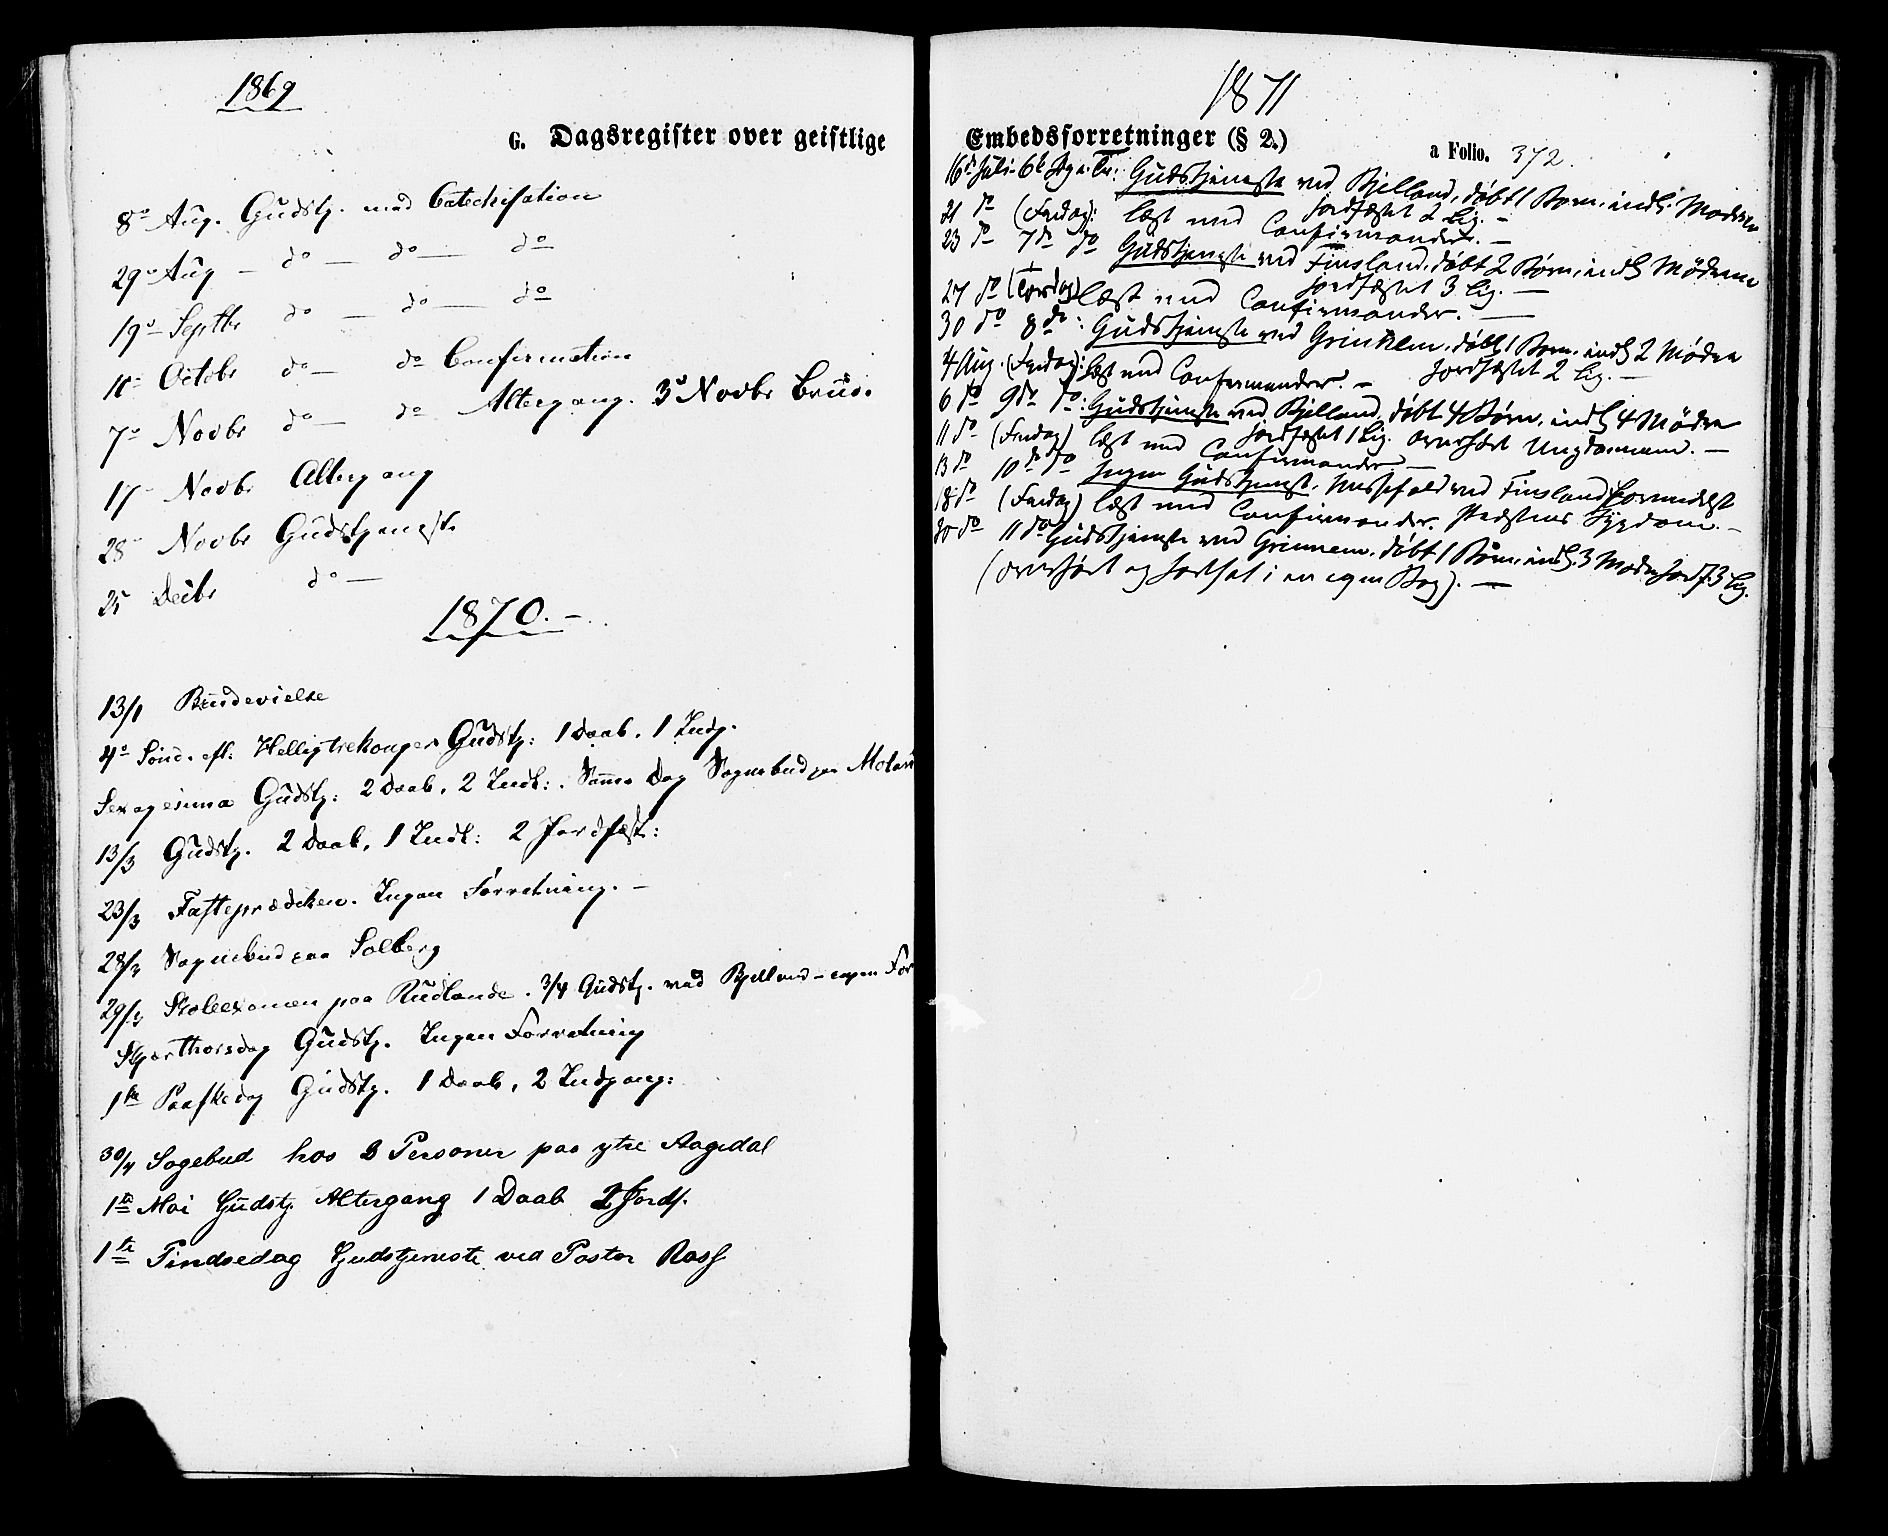 1869
G. Dagsregister over geistlige
8de Aug. Gudstj. med Catechisation
29de Aug — do — do — do
19de Septbr do — do — do
10de Octobr do — do Confirmation
7de Novbr do — do Altergang. 3de Novbr Bruus.
17de Novbr Altergang
28de Novbr Gudstjeneste
25 Decbr do —
1870. —
13/1 Brudevielse
4de Sönd. eft. Helligtrekonger Gudstj: 1 Daab. 1 Indg.
Sexagesima Gudstj: 2 Daab, 2 Indl: . Samme Dag Sognebud paa
13/3 Gudstj. 2 Daab, 1 Indl: 2 Jordfæst:
23/3 Fasteprædiken. Ingen Forretning. —
28/3 Sognebud paa Solberg
29/3 Skoleexamen paa Rudlande. 3/4 Gudstj. ved Bjelland – ingen For
Skjærthorsdag Gudstj. Ingen Forretning
1ste Paaskedag Gudstj. 1 Daab, 2 Indgang:
30/4 Sogebud hos 3 Personer paa ytre Aagedal
1ste Mai Gudstj. Altergang 1 Daab 2 Jordf.
1ste Pindsedag Gudstjeneste ved Pastor Rosf
1871
Embedsforretninger (§ 2.)
a Folio. 372.
16de Juli 6te S. e. Tr: Gudstjeneste ved Bjelland, döbt 1 Barn, indl. Moderen
jordfæstet 2 Lig. —
21 do (Fredag): læst med Confirmander. —
23 do 7de do Gudstjeneste ved Finsland, döbt 2 Börn, indl. Mödrene
jordfæstet 3 Lig. —
27 do (Torsdag) læst med Confirmander. —
30 do 8de: Gudstjeneste ved Grindem, döbt 1 Barn, indl 2 Mödre
jordfæstet 2 Lig. —
4 Aug. (Fredag): læst med Confirmander. —
6 do 9de do: Gudstjeneste ved Bjelland, döbt 4 Börn, indl 4 Mödre
jordfæstet 1 Lig. overhört Ungdommen. —
11 do (Fredag) læst med Confirmander. —
13 do 10de do Ingen Gudstjeneste, Messefald ved Finsland formedelst
Præstens Sygdom. —
18 do (Fredag) læst med Confirmander.
20 do 11 do Gudstjeneste ved Grindem, döbt 1 Barn, indl. 3 Mödre jordf. 3 Lig.
(overfört og fortsat i en egen Bog). —